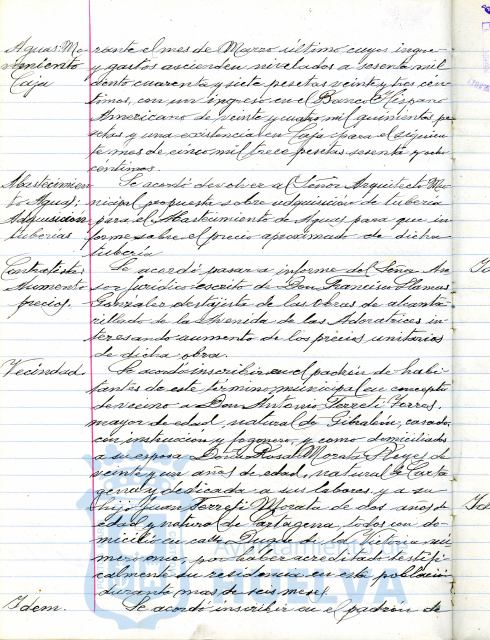 Aguas: Mo-
vimiento
Caja
rante el mes de Marzo último cuyos ingre-
y gastos ascienden nivelados a sesenta mil
ciento cuarenta y siete pesetas veinte y tres cén-
timos, con un ingreso en el Banco Hispano
Americano de veinte y cuatro mil quinientas pe-
setas y una existencia en Caja para el siguien-
te mes de cinco mil trece pesetas sesenta y ocho
céntimos.
Abastecimien-
to Aguas:
Adquisición
tuberías
Se acordó devolver al Señor Arquitecto Mu-
nicipal propuesta sobre adquisición de tubería
para el Abastecimiento de Aguas para que in-
forme sobre el precio aproximado de dicha
tubería
Contratista
Aumento
precios.
Se acordó pasar a informe del Señor Ase-
sor jurídico escrito de Don Francisco Llamas
González destajista de las obras de alcanta-
rillado de la Avenida de las Adoratrices in-
teresando aumento de los precios unitarios
de dicha obra.
Vecindad
Se acordó inscribir en el padrón de habi-
tantes de este término municipal en concepto
de vecino a Don Antonio Ferreli Torres,
mayor de edad, natural de Gibraleón, casado,
con instrucción y fogonero, y como domiciliados
a su esposa Doña Rosa Morata Reyes de
veinte y un años de edad, natural de Carta-
gena y dedicada a sus labores y a su
hijo Juan Ferreli Morata de dos años de
edad y natural de Cartagena, todos con do-
micilio en calle Duque de la Victoria nú-
mero once, por haber acreditado testifi-
calmente su residencia en esta población
durante mas de seis meses.
Idem.
Se acordó inscribir en el padrón de
Ayuntamiento de
HUELVA